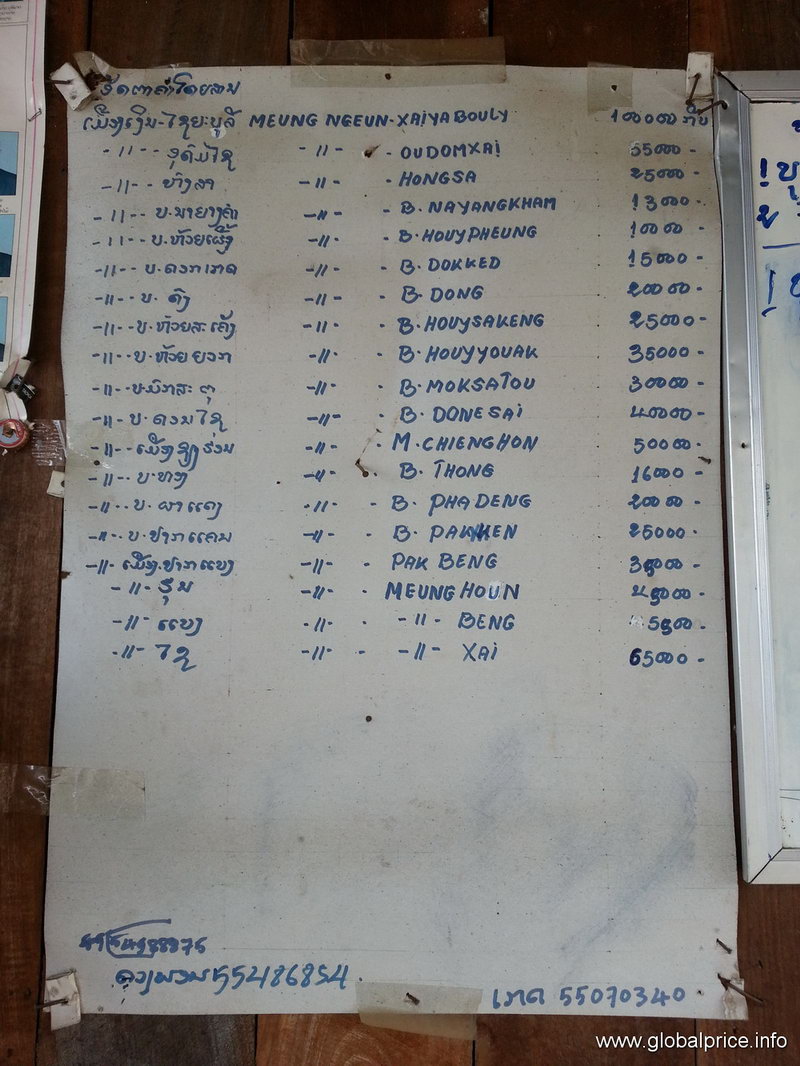 ອັດຕາຄ່າໂດຍສານ
ເມືອງເງິນ-ໄຊຍະບູລີ MEUNG NGEUN-XAIYABOULY 100000 ກີບ
-11-- ອຸດົມໄຊ -11- - OUDOMXAI 55000-
-11-- ຫົງສາ -11- - HONGSA 25000-
-11-- ບ.ນາຍາງຄຳ -11- - B. NAYANGKHAM 13000-
-11-- ບ.ຫ້ວຍເຜິ້ງ -11- - B. HOUYPHEUNG 10000-
-11-- ບ.ດອກເກດ -11- - B. DOKKED 15000-
-11-- ບ. ດົງ -11- - B. DONG 20000-
-11-- ບ.ຫ້ວຍສະເຄັງ -11- - B. HOUYSAKENG 25000-
-11-- ບ.ຫ້ວຍຍວກ -11- - B. HOUYYOUAK 35000-
-11-- ບ.ມົກສະຕຸ -11- - B. MOKSATOU 30000-
-11-- ບ.ດອນໄຊ -11- - B. DONESAI 40000-
-11-- ເມືອງຊຽງຮ່ອນ -11- - M. CHIENGHON 50000-
-11-- ບ.ທົງ -11- - B. THONG 16000-
-11-- ບ. ຜາແດງ -11- - B. PHADENG 20000-
-11-- ບ.ປາກແຄນ -11- - B. PAKKEN 25000-
-11- ເມືອງ.ປາກແບງ -11- - PAK BENG 35000-
-11- ຮຸນ -11- - MEUNG HOUN
-11- ແບງ -11- - -11- BENG
-11- ໄຊ -11- - -11- XAI 65000-
55486854
ເກດ 55070340
www.globalprice.info